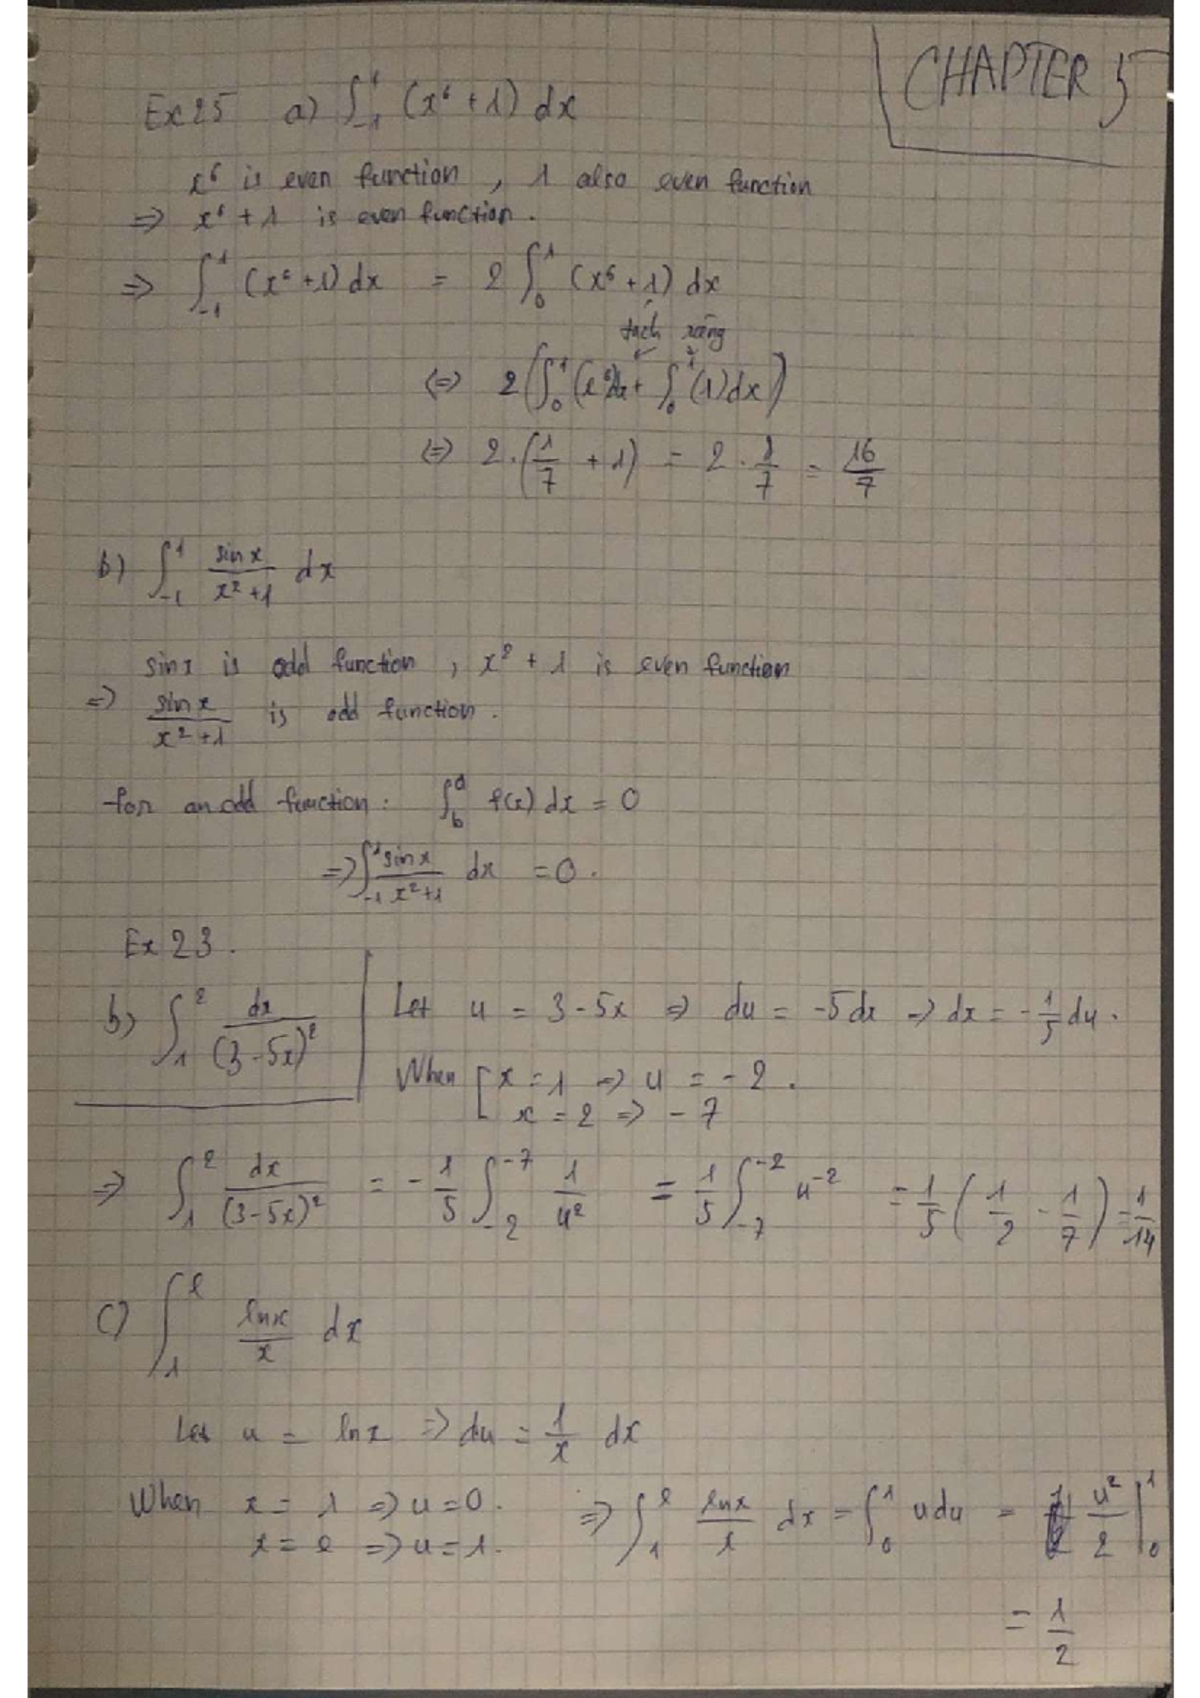 CHAPTER 5
Ex 25 a) ∫_{-1}^{1} (x⁶ + 1) dx
x⁶ is even function , 1 also even function
=> x⁶ + 1 is even function .
=> ∫_{-1}^{1} (x⁶ + 1) dx = 2 ∫_{0}^{1} (x⁶ + 1) dx
<=> 2 (∫_{0}^{1} (x⁶)dx + ∫_{0}^{1} (1) dx)
<=> 2 . (1/7 + 1) = 2 . 8/7 = 16/7
b) ∫_{-1}^{1} sin x / (x² + 1) dx
sin x is odd function , x² + 1 is even function
=> sin x / (x² + 1) is odd function .
for an odd function : ∫_{b}^{a} f(x) dx = 0
=> ∫_{-1}^{1} sin x / (x² + 1) dx = 0 .
Ex 23 .
b) ∫_{1}^{2} dx / (3 - 5x)²
Let u = 3 - 5x => du = -5dx => dx = -1/5 du .
When [ x = 1 => u = -2 .
x = 2 => -7
=> ∫_{1}^{2} dx / (3 - 5x)² = -1/5 ∫_{-2}^{-7} 1/u² = 1/5 ∫_{-7}^{-2} u⁻² = 1/5 (1/2 - 1/7) = 1/14
c) ∫_{1}^{e} ln x / x dx
Let u = ln x => du = 1/x dx
When x = 1 => u = 0 .
x = e => u = 1 .
=> ∫_{1}^{e} ln x / x dx = ∫_{0}^{1} u du = u²/2 |_{0}^{1}
= 1/2